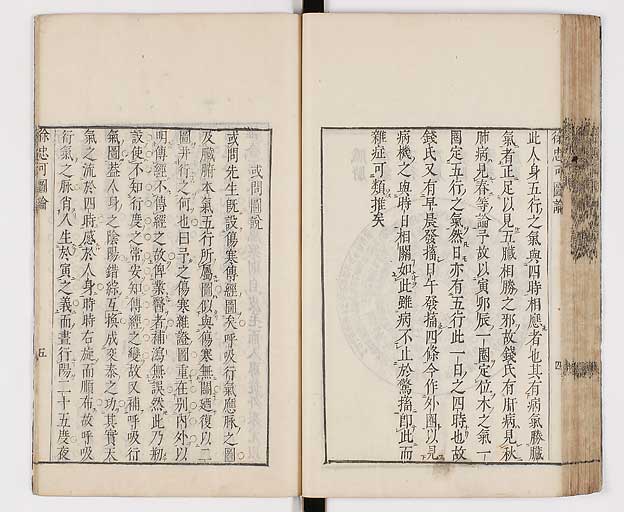 徐忠可圖論
此人身五行之氣與四時相應者也其有病氣勝臟
氣者正足以見五臟相勝之邪故錢氏有肝病見秋
肺病見春等論予故以寅卯辰一圈定位木之氣一
圈定五行之氣然日亦有五行此一日之四時也故
錢氏又有早晨發搐日午發搐四條今作外圈以見
病機之與時日相關如此雖病不止於驚搐即此而
雜症可類推矣
四
或問圖說
或問先生既設傷寒傳經圖矣呼吸行氣應脉之圖
及臟腑本氣五行所屬圖似與傷寒無關廼復以二
圖并行之何也曰予之傷寒雜證圖重在别内外以
明傳經不傳經之故俾業醫者補瀉無誤然此乃勒
設使不知行度之常安知傳經之變故又補呼吸行
氣圖葢人身之陰陽錯綜互換成交泰之功其實天
氣之流於四時感於人身時時右旋而順布故呼吸
行氣之脉肖人生於寅之義而晝行陽二十五度夜
徐忠可圖論
五